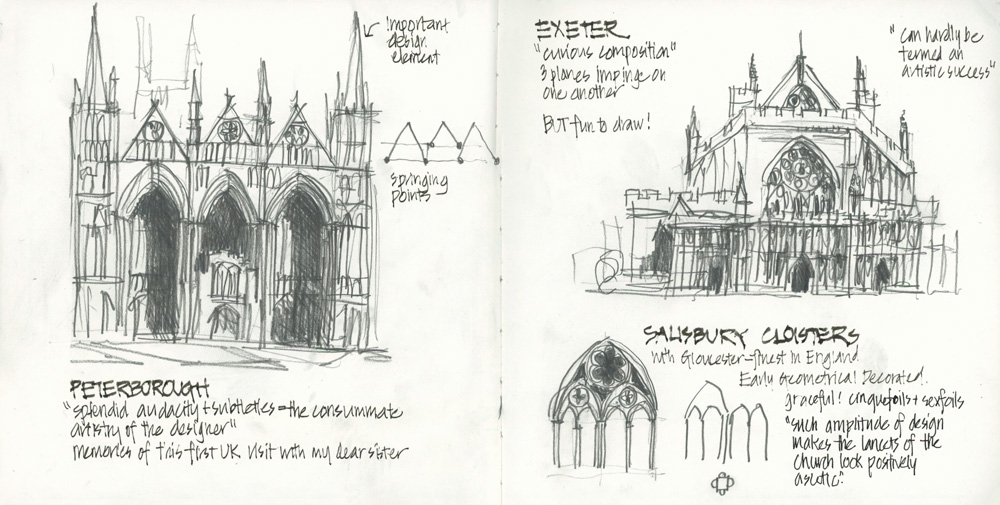 important
design
element
springing
points
PETERBOROUGH
"splendid audacity + subtleties = the consummate
artistry of the designer"
memories of this first UK visit with my dear sister
EXETER
"curious composition"
3 planes impinge on
one another
BUT fun to draw!
"can hardly be
termed an
artistic success"
SALISBURY CLOISTERS
with Gloucester-finest in England
Early Geometrical Decorated.
graceful! cinquefoils + sexfoils
"such amplitude of design
makes the lancets of the
church look positively
ascetic."